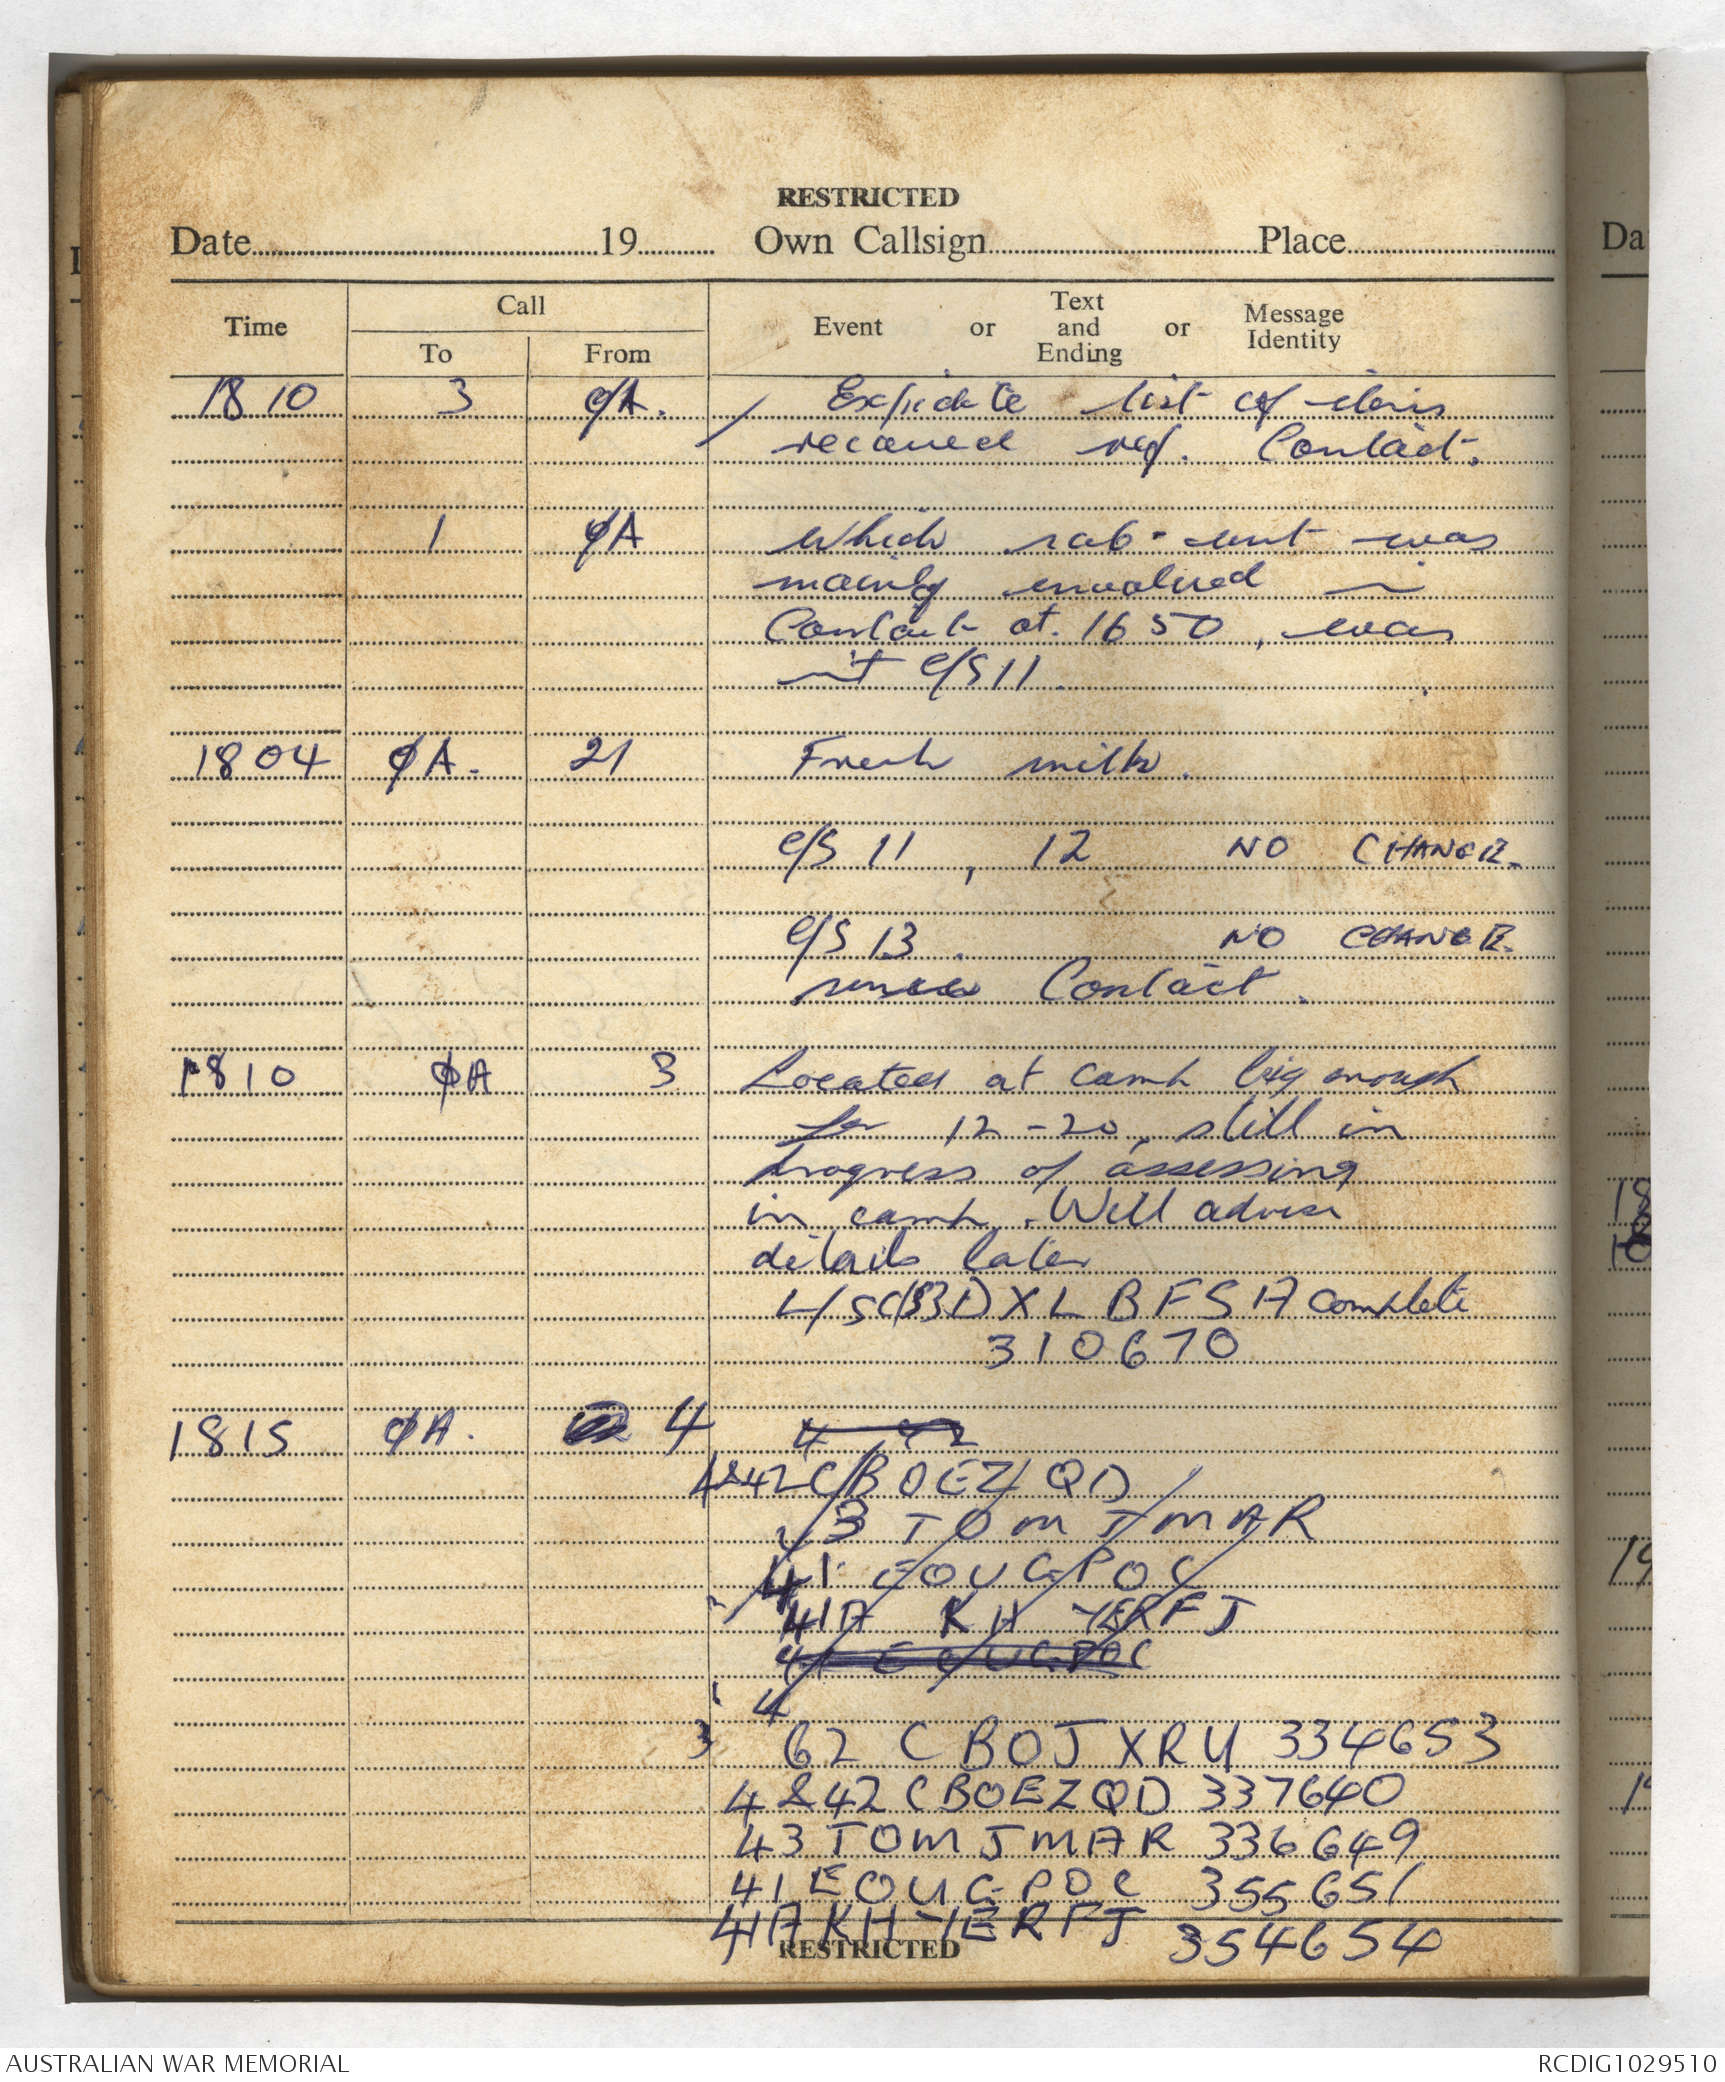 RESTRICTED
Date 19 Own Callsign Place
Time Call To From Event or Text and Ending or Message Identity
1810 3 ØA. Expidate list of items
received ref. Contact.
1 ØA Which sub-unit was
mainly involved in
Contact at 1650, was
it C/S 11
1804 ØA. 21 Fresh milk.
C/S 11, 12 NO CHANGE.
C/S 13. NO CHANGE.
since Contact.
1810 ØA 3 Located at camp big enough
for 12-20, still in
progress of assessing
in camp. Will advise
details later
XLBFSA complete
310670
1815 ØA. 4 4 42
4&42 CBOEZQD
3 TOMJMAR
41 EOUGPOC
41A KHYERFJ
41 EOUGPOC
4
62 CBOJXRU 334653
4&42 CBOEZQD 337640
43 TOMJMAR 336649
41 EOUGPOC 355651
41A KHYERFJ 354654
RESTRICTED
AUSTRALIAN WAR MEMORIAL RCDIG1029510